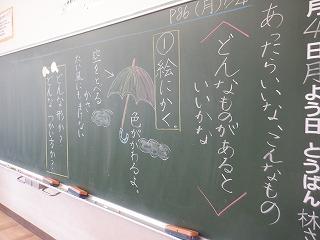 月4日月よう日とうばん 林さ
あったらいいな、こんなもの
P86(月)
どんなものがあると、
いいかな
①絵にかく。
色がかわるよ。
空をとべる
かさ
どんな形か?
どんなつかい方か?